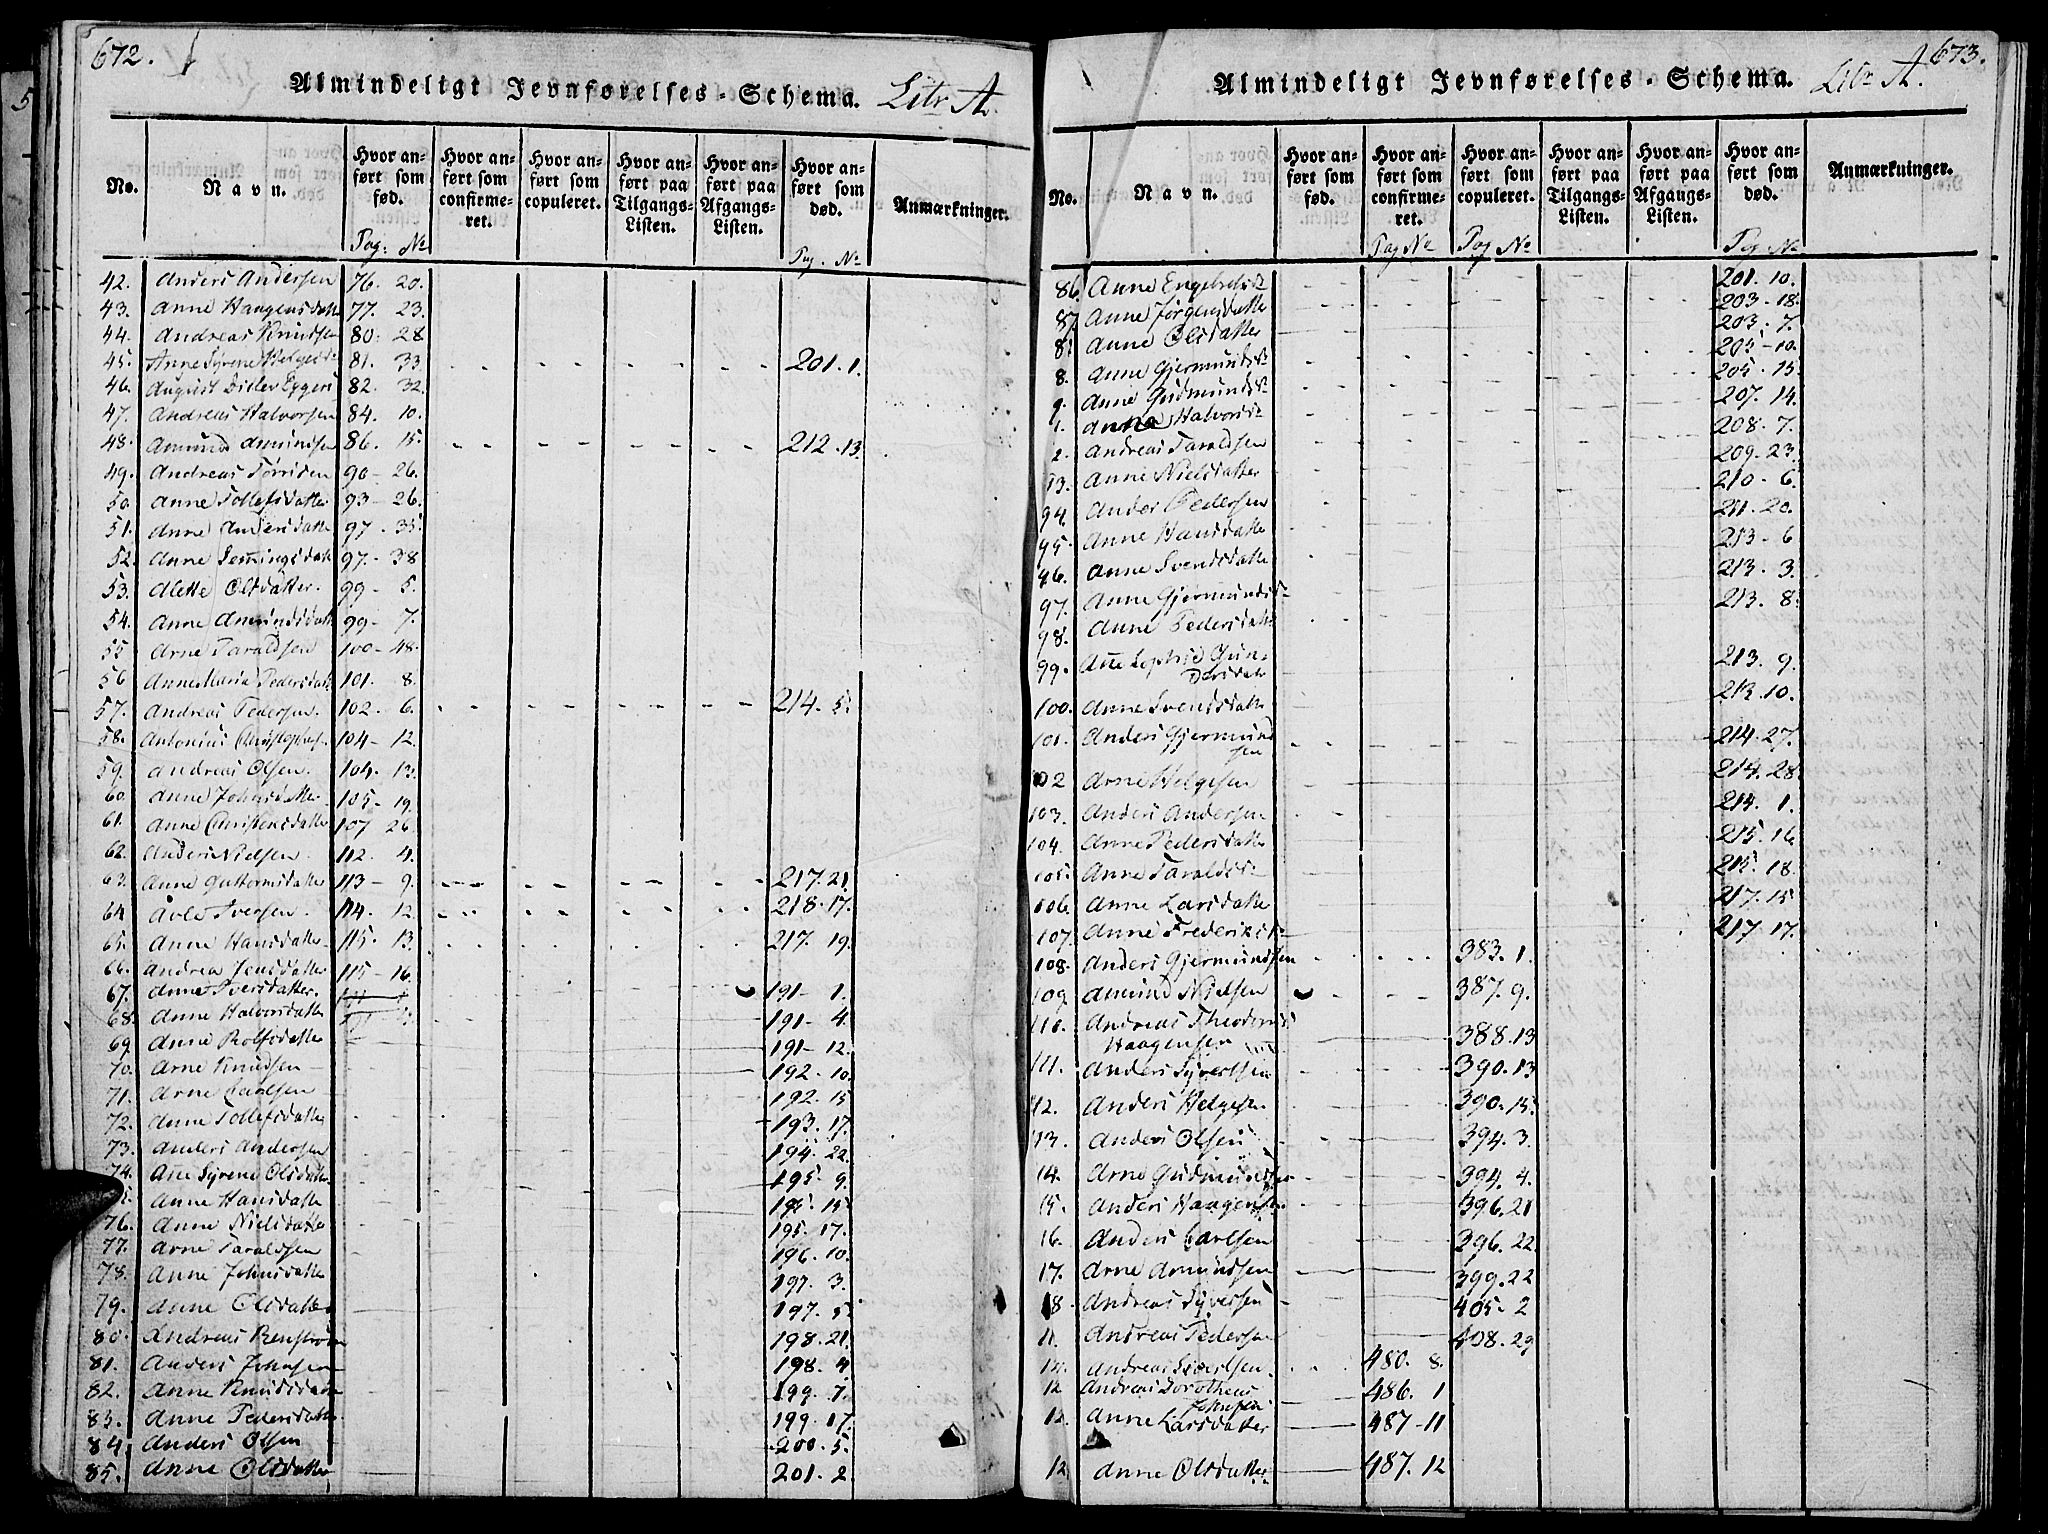 672.
Almindeligt Jevnførelses-Schema. Litr A.
No. Navn. Hvor anført som fød. Hvor anført som confirmeret. Hvor anført som copuleret. Hvor anført paa Tilgangs-Listen. Hvor anført paa Afgangs-Listen. Hvor anført som død. Anmærkninger.
Pag: No Pag. No
42. Anders Andersen 76. 20.
43. Anne Haagensdatte 77. 23.
44. Andreas Knudsen 80. 28
45. Anne Syrene Helgesd 81. 33 201. 1.
46. August Ditlev Eggers 82. 32.
47. Andreas Halvorsen 84. 10.
48. Amund Amundsen 86. 15. 212. 13.
49. Andreas 90- 26.
50. Anne Tollefsdatter 93- 26.
51. Anne Andersdatte 97. 35.
52. Anne Lemingsdatt 97. 38
53. Alette Olsdatter. 99- 5.
54. Anne Amundsdatt 99- 7.
55 Arne Taraldsen 100- 48.
56 Anne Maria Pedersdatt 101. 8.
57. Andreas Pedersen. 102- 6. 214. 5.
58. Antonius Christophes. 104- 12.
59. Andreas Olsen. 104. 13.
60. Anne Johnsdatter. 105- 19.
61. Anne Christensdatter 107 26.
62. Anders Nielsen. 112. 4.
63. Anne Guttormsdatter 113- 9. 217. 21.
64 Avle Iversen. 114. 12. 218. 17.
65. Anne Hansdatter 115. 13. 217. 19.
66. Andrea Jensdatter 115- 16.
67. Anne Iversdatter. 191- 1.
68. Anne Halvorsdatte 191- 4.
69. Anne Rolfsdatter 191- 12.
70. Arne Knudsen 192. 10.
71. Arne Carlsen 192. 15
72. Anne Tollefsdatte 193. 17.
73. Anders Andersen 194. 22.
74. Ane Syrene Olsdatter 195. 9.
Anne Hansdatte 195. 15.
76. Anne Nielsdatter 195. 17.
77. Arne Taraldsen 196. 10.
78. Anne Johnsdatte 197. 3.
79. Anne Olsdatter 197. 5.
80. Andreas 198. 21.
81. Anders Johnsen 198. 4
82. Anne Knudsdatte 199. 7.
83. Anne Pedersdatte 199. 17.
84. Anders Olsen 200. 5.
85. Anne Olsdatter 201. 2.
673.
Almindeligt Jevnførelses-Schema. Litr A.
No. Navn. Hvor anført som fød. Hvor anført som confirmeret. Hvor anført som copuleret. Hvor anført paa Tilgangs-Listen. Hvor anført paa Afgangs-Listen. Hvor anført som død. Anmærkninger.
Pag No Pag No Pag No
86 Anne Engebretsd 201. 10.
87. Anne Jørgensdatter 203. 18.
8 Anne Olsdatter 203. 7.
8. Anne Gjermundsd 205- 10.
9. Anne Gudmundsd 205. 15.
1. Anne Halvorsd 207. 14.
2. Andreas Taraldsen 208. 7.
93. Anne Nielsdatter 209. 23.
94. Anders Pedersen 210. 6.
95. Anne Hansdatte 211. 20.
96. Anne Svendsdatte 213- 6
97. Anne Gjermundsd 213. 3.
98. Anne Pedersdatte 213. 8.
99. Ane Sophie Gundersdatte 213. 9.
100. Anne Svendsdatte 213. 10.
101. Anders Gjermundsen 214. 27.
102 Arne Helgesen 214. 28.
103. Anders Andersen 214. 1.
104. Anne Pedersdatte 215. 16.
105. Anne Taraldsd 215. 18.
106. Anne Larsdatte 217. 15
107. Anne Frederiksd 217. 17.
108. Anders Gjermundsen 383. 1.
109. Amund Nielsen 387. 9.
110. Andreas
Haagensen 388. 13
111. Anders Syversen 390. 13
12. Anders Helgesen 390. 15.
13. Anders Olsen 394. 3.
14. Arne Gudmundsen 394. 4.
15. Anders Haagensen 396. 21
16. Anders Carlsen 396. 22.
17. Arne Amundsen 399. 22
18. Andreas Syversen 405. 2
11. Andreas Pedersen 408. 29
12. Andreas 480. 8.
12 Andreas Dorotheus Johnsen 486. 1
12. Anne Larsdatter 487-11
12. Anne Olsdatter 487. 12